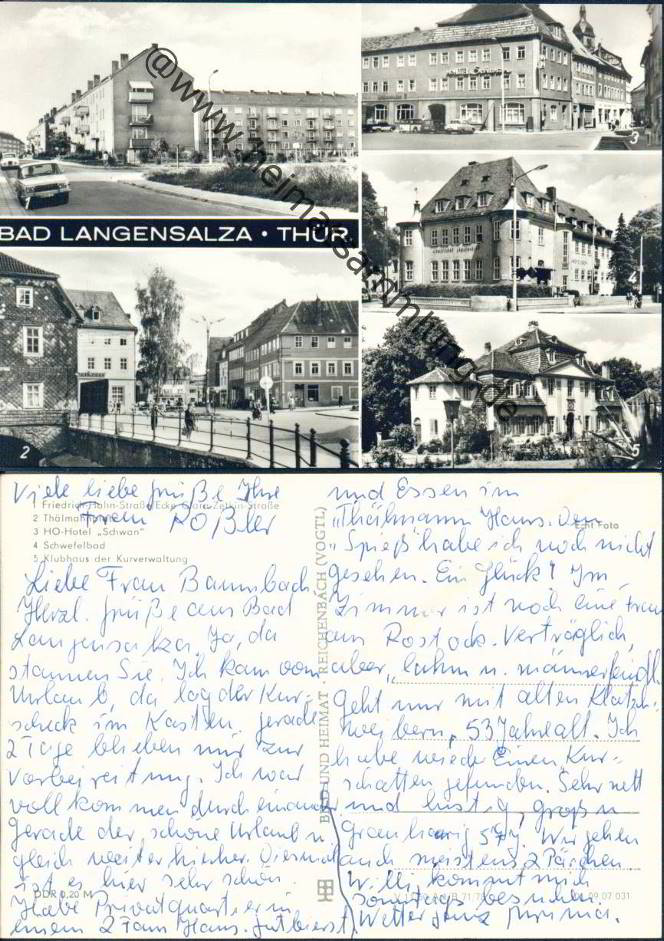 BAD LANGENSALZA · THÜR.
@www.heimatsammlung.de
2
3
4
5
1 Friedrich-Hahn-Straße Ecke Clara-Zetkin-Straße
2 Thälmannplatz
3 HO-Hotel „Schwan"
4 Schwefelbad
5 Klubhaus der Kurverwaltung
Echt Foto
BILD UND HEIMAT · REICHENBACH (VOGTL)
DDR 0,20 M
09 07 031
Viele liebe Grüße Ihre
Frau Roßler
Liebe Frau Baumbach
Herzl. Grüße aus Bad
Langensalza. Ja, da
staunen Sie. Ich kam vom
Urlaub, da lag der Kur-
scheck im Kasten. Gerade
2 Tage blieben mir zur
Vorbereitung. Ich war
vollkommen durcheinander
Gerade der schöne Urlaub u.
gleich weiter hierher. Diesmal
ist es hier sehr schön.
Habe Privatquartier in
einem 2 Fam Haus. Gut
und Essen im
"Thälmann Haus. Den
"Spieß" habe ich noch nicht
gesehen. Ein Glück! Im
Zimmer ist noch eine Frau
aus Rostock. Verträglich,
aber, lahm u. männerfeindl.
geht nur mit alten Klatsch-
weibern, 53 Jahre alt. Ich
habe wieder Einen Kur-
schatten gefunden. Sehr nett
und lustig, groß u
Grauhaarig 57 J. Wir gehen
auch meistens 2 Pärchen
Willi, kommt mich
sonntags besuchen.
Wetter ganz prima.